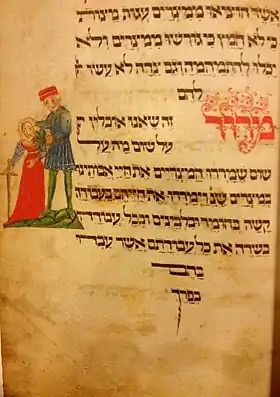 אשר הוציאו ממצרים עגות מצות
כי לא חמץ כי גרשו ממצרים ולא
יכלו להתמהמה וגם צדה לא עשו
להם
מרור
זה שאנו אוכלין
על שום מה על
שום שמררו המצרים את חיי אבותינו
במצרים שנ וימררו את חייהם בעבודה
קשה בחומר ובלבינים ובכל עבודה
בשדה את כל עבודתם אשר עבדו
בהם
בפרך